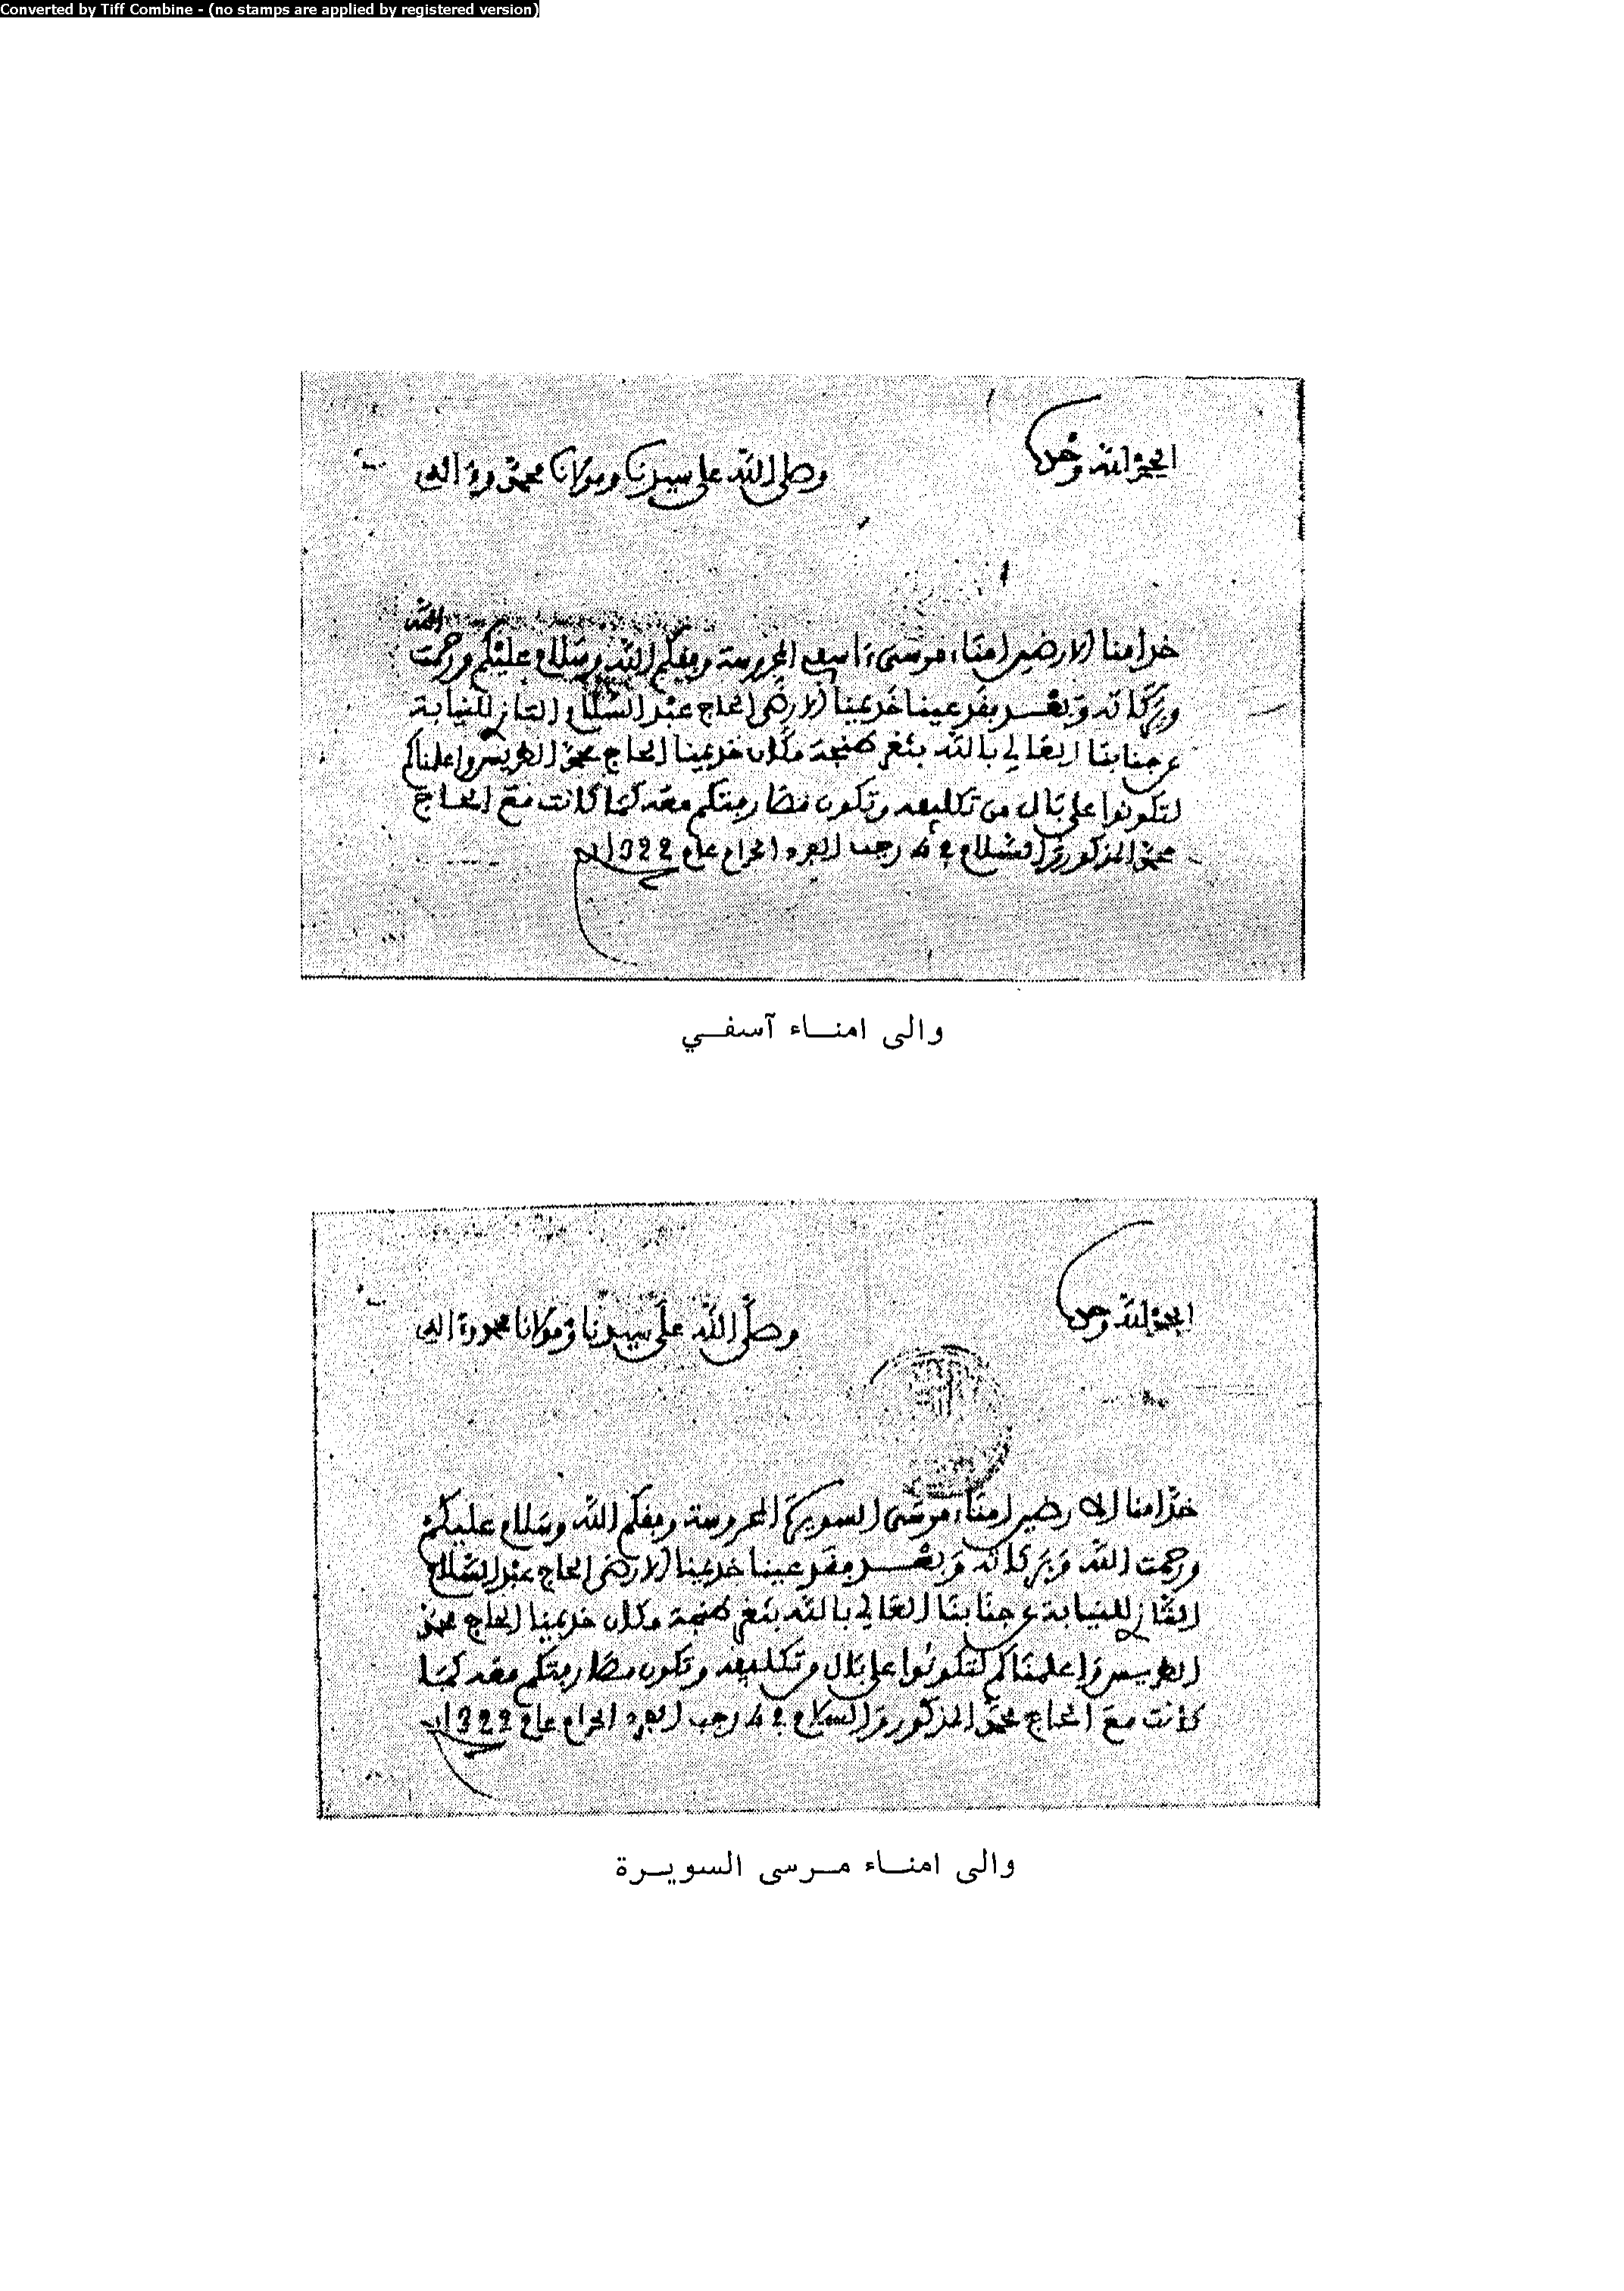 Converted by Tiff Combine - (no stamps are applied by registered version)
الحمد لله وحده
وصلى الله على سيدنا ومولانا محمد وءاله
خدامنا الارضين امناء مرسى ءاسفي المحروسة وفقكم الله وسلام عليكم ورحمت الله
وبركاته وبعد فقد عينا خديمنا الارضى الحاج عبد السلام التازي للنيابة
عن جنابنا العالي بالله بثغر طنجة مكان خديمنا الحاج محمد الطريس واعلمناكم
لتكونوا على بال من تكليفه وتكون مخابرتكم معه كما كانت مع الحاج
محمد المذكور والسلام في 4 رجب الفرد الحرام عام 1322
والى امنـاء آسفـي
الحمد لله وحده
وصلى الله على سيدنا ومولانا محمد وءاله
خدامنا الارضين امناء مرسى السويرة المحروسة وفقكم الله وسلام عليكم
ورحمت الله وبركاته وبعد فقد عينا خديمنا الارضى الحاج عبد السلام
التازي للنيابة عن جنابنا العالي بالله بثغر طنجة مكان خديمنا الحاج محمد
الطريس واعلمناكم لتكونوا على بال من تكليفه وتكون مخابرتكم معه كما
كانت مع الحاج محمد المذكور والسلام في 4 رجب الفرد الحرام عام 1322
والى امنـاء مـرسى السويـرة